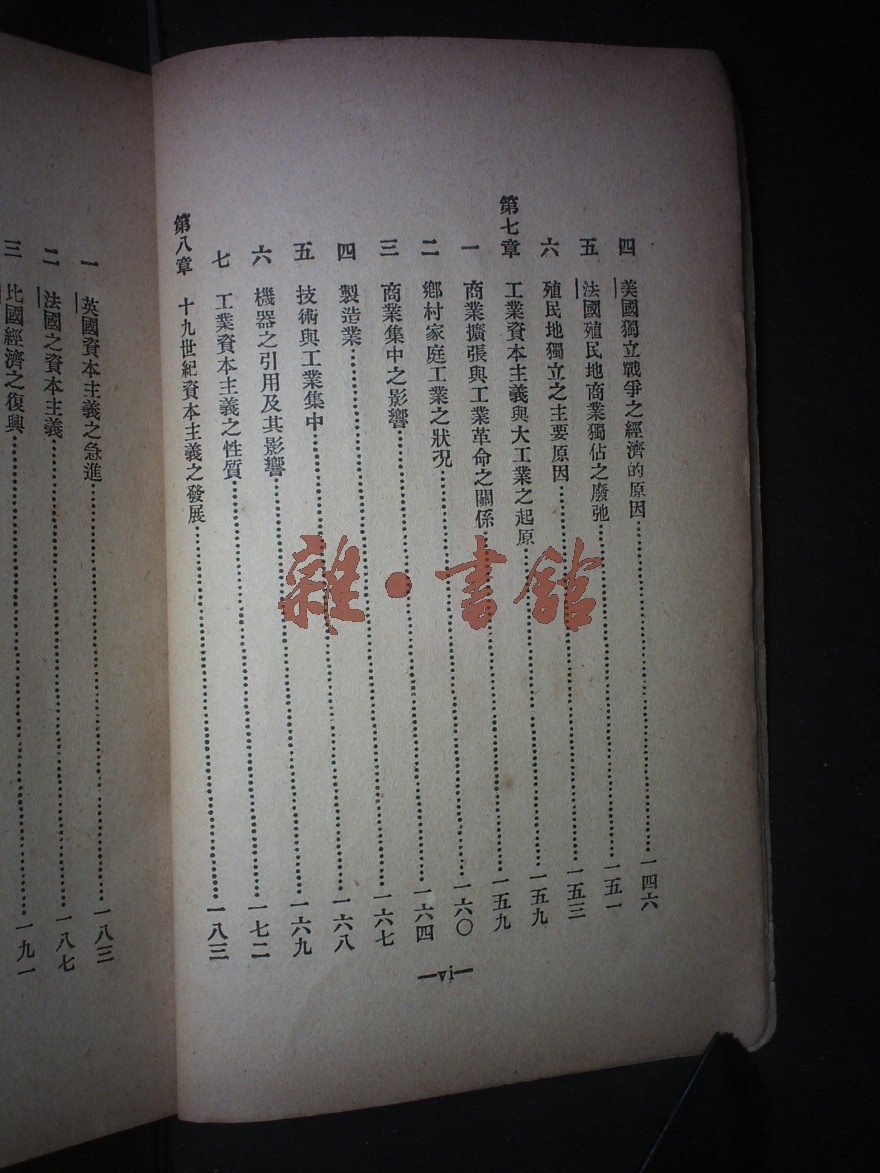 四 美國獨立戰爭之經濟的原因……一四六
五 法國殖民地商業獨佔之廢弛……一五一
六 殖民地獨立之主要原因……一五三
第七章 工業資本主義與大工業之起原……一五九
一 商業擴張與工業革命之關係……一五九
二 鄉村家庭工業之狀況……一六〇
三 商業集中之影響……一六四
四 製造業……一六七
五 技術與工業集中……一六八
六 機器之引用及其影響……一六九
七 工業資本主義之性質……一七二
第八章 十九世紀資本主義之發展……一八三
—vi—
一 英國資本主義之急進……一八三
二 法國之資本主義……一八七
三 比國經濟之復興……一九一
雜·書館